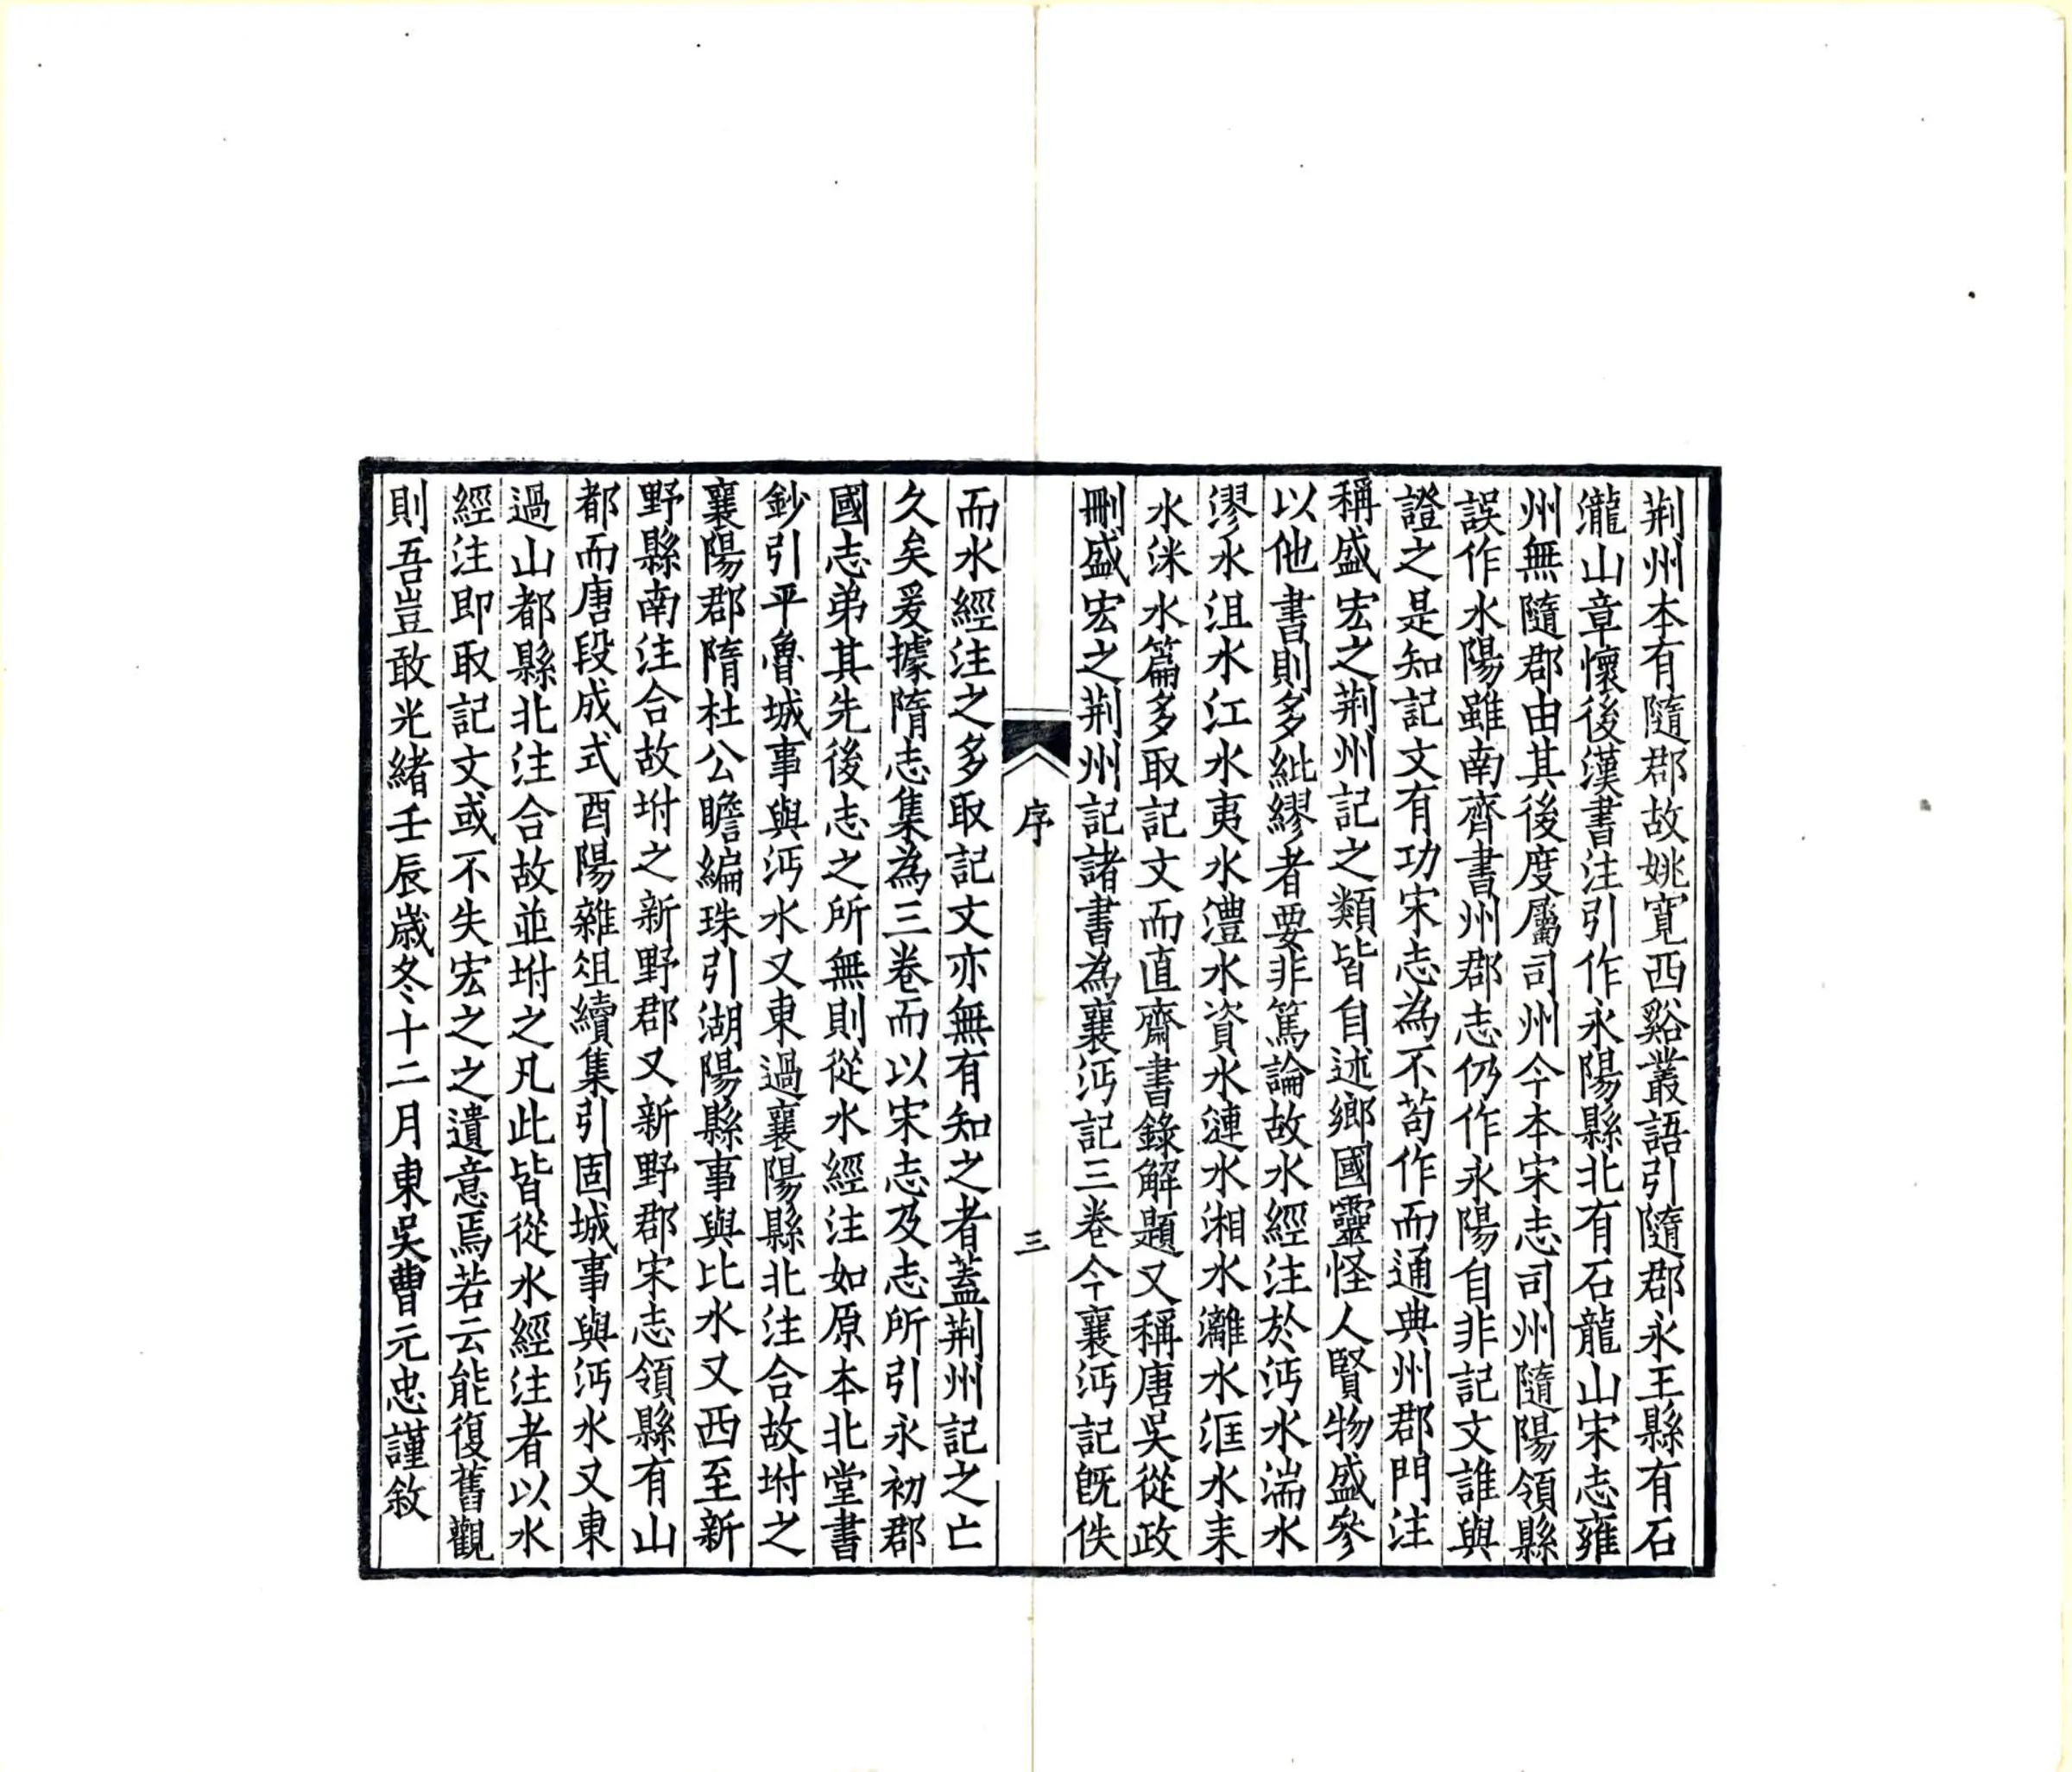 荆州本有隨郡故姚寛西谿叢語引隨郡永王縣有石
瀧山章懷後漢書注引作永陽縣北有石龍山宋志雍
州無隨郡由其後度屬司州今本宋志司州隨陽領縣
誤作水陽雖南齊書州郡志仍作永陽自非記文誰與
證之是知記文有功宋志為不苟作而通典州郡門注
稱盛宏之荆州記之類皆自述鄉國靈怪人賢物盛參
以他書則多紕繆者要非篤論故水經注於沔水湍水
漻水沮水江水夷水澧水資水漣水湘水灕水洭水耒
水洣水篇多取記文而直齋書錄解題又稱唐吳從政
刪盛宏之荆州記諸書為襄沔記三卷今襄沔記旣佚
序
三
而水經注之多取記文亦無有知之者蓋荆州記之亡
久矣爰據隋志集為三卷而以宋志及志所引永初郡
國志弟其先後志之所無則從水經注如原本北堂書
鈔引平魯城事與沔水又東過襄陽縣北注合故坿之
襄陽郡隋杜公瞻編珠引湖陽縣事與比水又西至新
野縣南注合故坿之新野郡又新野郡宋志領縣有山
都而唐段成式酉陽雜俎續集引固城事與沔水又東
過山都縣北注合故並坿之凡此皆從水經注者以水
經注即取記文或不失宏之之遺意焉若云能復舊觀
則吾豈敢光緒壬辰歲冬十二月東吳曹元忠謹敘